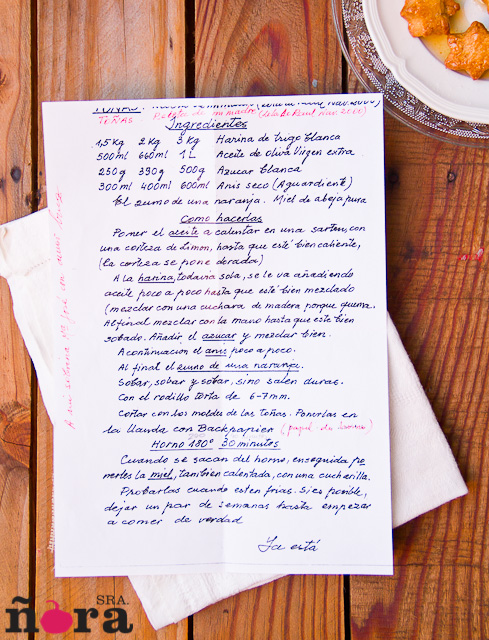 TOÑAS: Receta de mi madre (de la de Raul, nav. 2000)
Ingredientes
1,5 Kg 2 Kg 3 Kg Harina de trigo blanca
500 ml 660 ml 1 L Aceite de oliva Virgen extra
250 g 390 g 500 g Azucar blanca
300 ml 400 ml 600 ml Anis seco (Aguardiente)
El zumo de una naranja. Miel de abeja pura
Como hacerlas
Poner el aceite a calentar en una sarten, con
una corteza de limon, hasta que esté bien caliente,
(la corteza se pone dorada)
A la harina, todavia sola, se le va añadiendo
aceite poco a poco hasta que esté bien mezclado
(mezclar con una cuchara de madera porque quema.
Al final mezclar con la mano hasta que este bien
sobado. Añadir el azucar y mezclar bien.
A continuacion el anis poco a poco.
Al final el zumo de una naranja.
Sobar, sobar y sobar, sino salen duras.
Con el rodillo torta de 6-7 mm.
Cortar con los moldes de las toñas. Ponerlas en
la llanda con Backpapier (papel de horno)
Horno 180° 30 minutos
Cuando se sacan del horno, enseguida po
nerles la miel, tambien calentada, con una cucharilla.
Probarlas cuando esten frias. Si es posible,
dejar un par de semanas hasta empezar
a comer de verdad
Ya está
SRA.
ñora